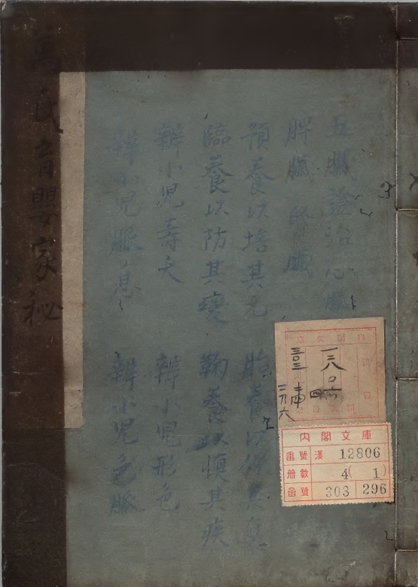 五臟證治心臟
脾臟　腎臟
預養以培其元　胎養以保其真
臨養以防其變　鞠養以慎其疾
辨小兒壽夭　辨小兒形色
辨小兒脈息　辨小兒色脈
氏育嬰家秘
内閣文庫
番號 漢 12806
冊數 4(1)
函號 303 296